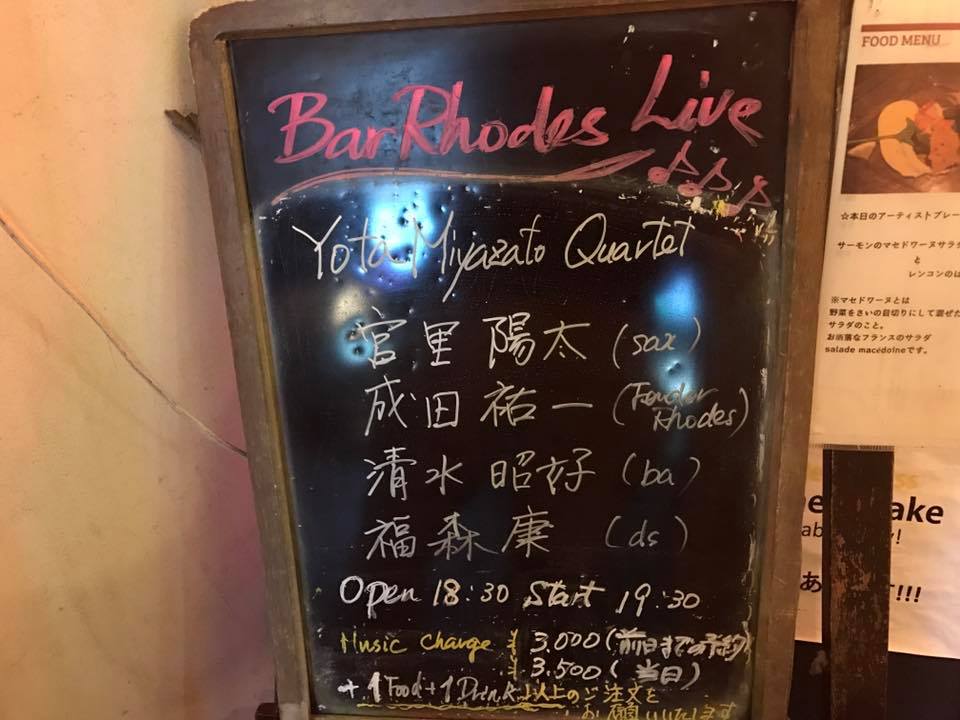 Bar Rhodes Live
Yota Miyazato Quartet
宮里 陽太 (sax)
成田 祐一 (Fender Rhodes)
清水 昭好 (ba)
福森 康 (ds)
Open 18:30 Start 19:30
Music Charge ¥3.000 (前日までの予約)
¥3.500 (当日)
+1Food+1Drink以上のご注文を
お願いいたします
FOOD MENU
☆本日のアーティストプレー
サーモンのマセドワーヌサラダ
と
レンコンのは
※マセドワーヌとは
野菜をさいの目切りにして混ぜた
サラダのこと。
お洒落なフランスのサラダ
salade macédoineです。
ake
!!!